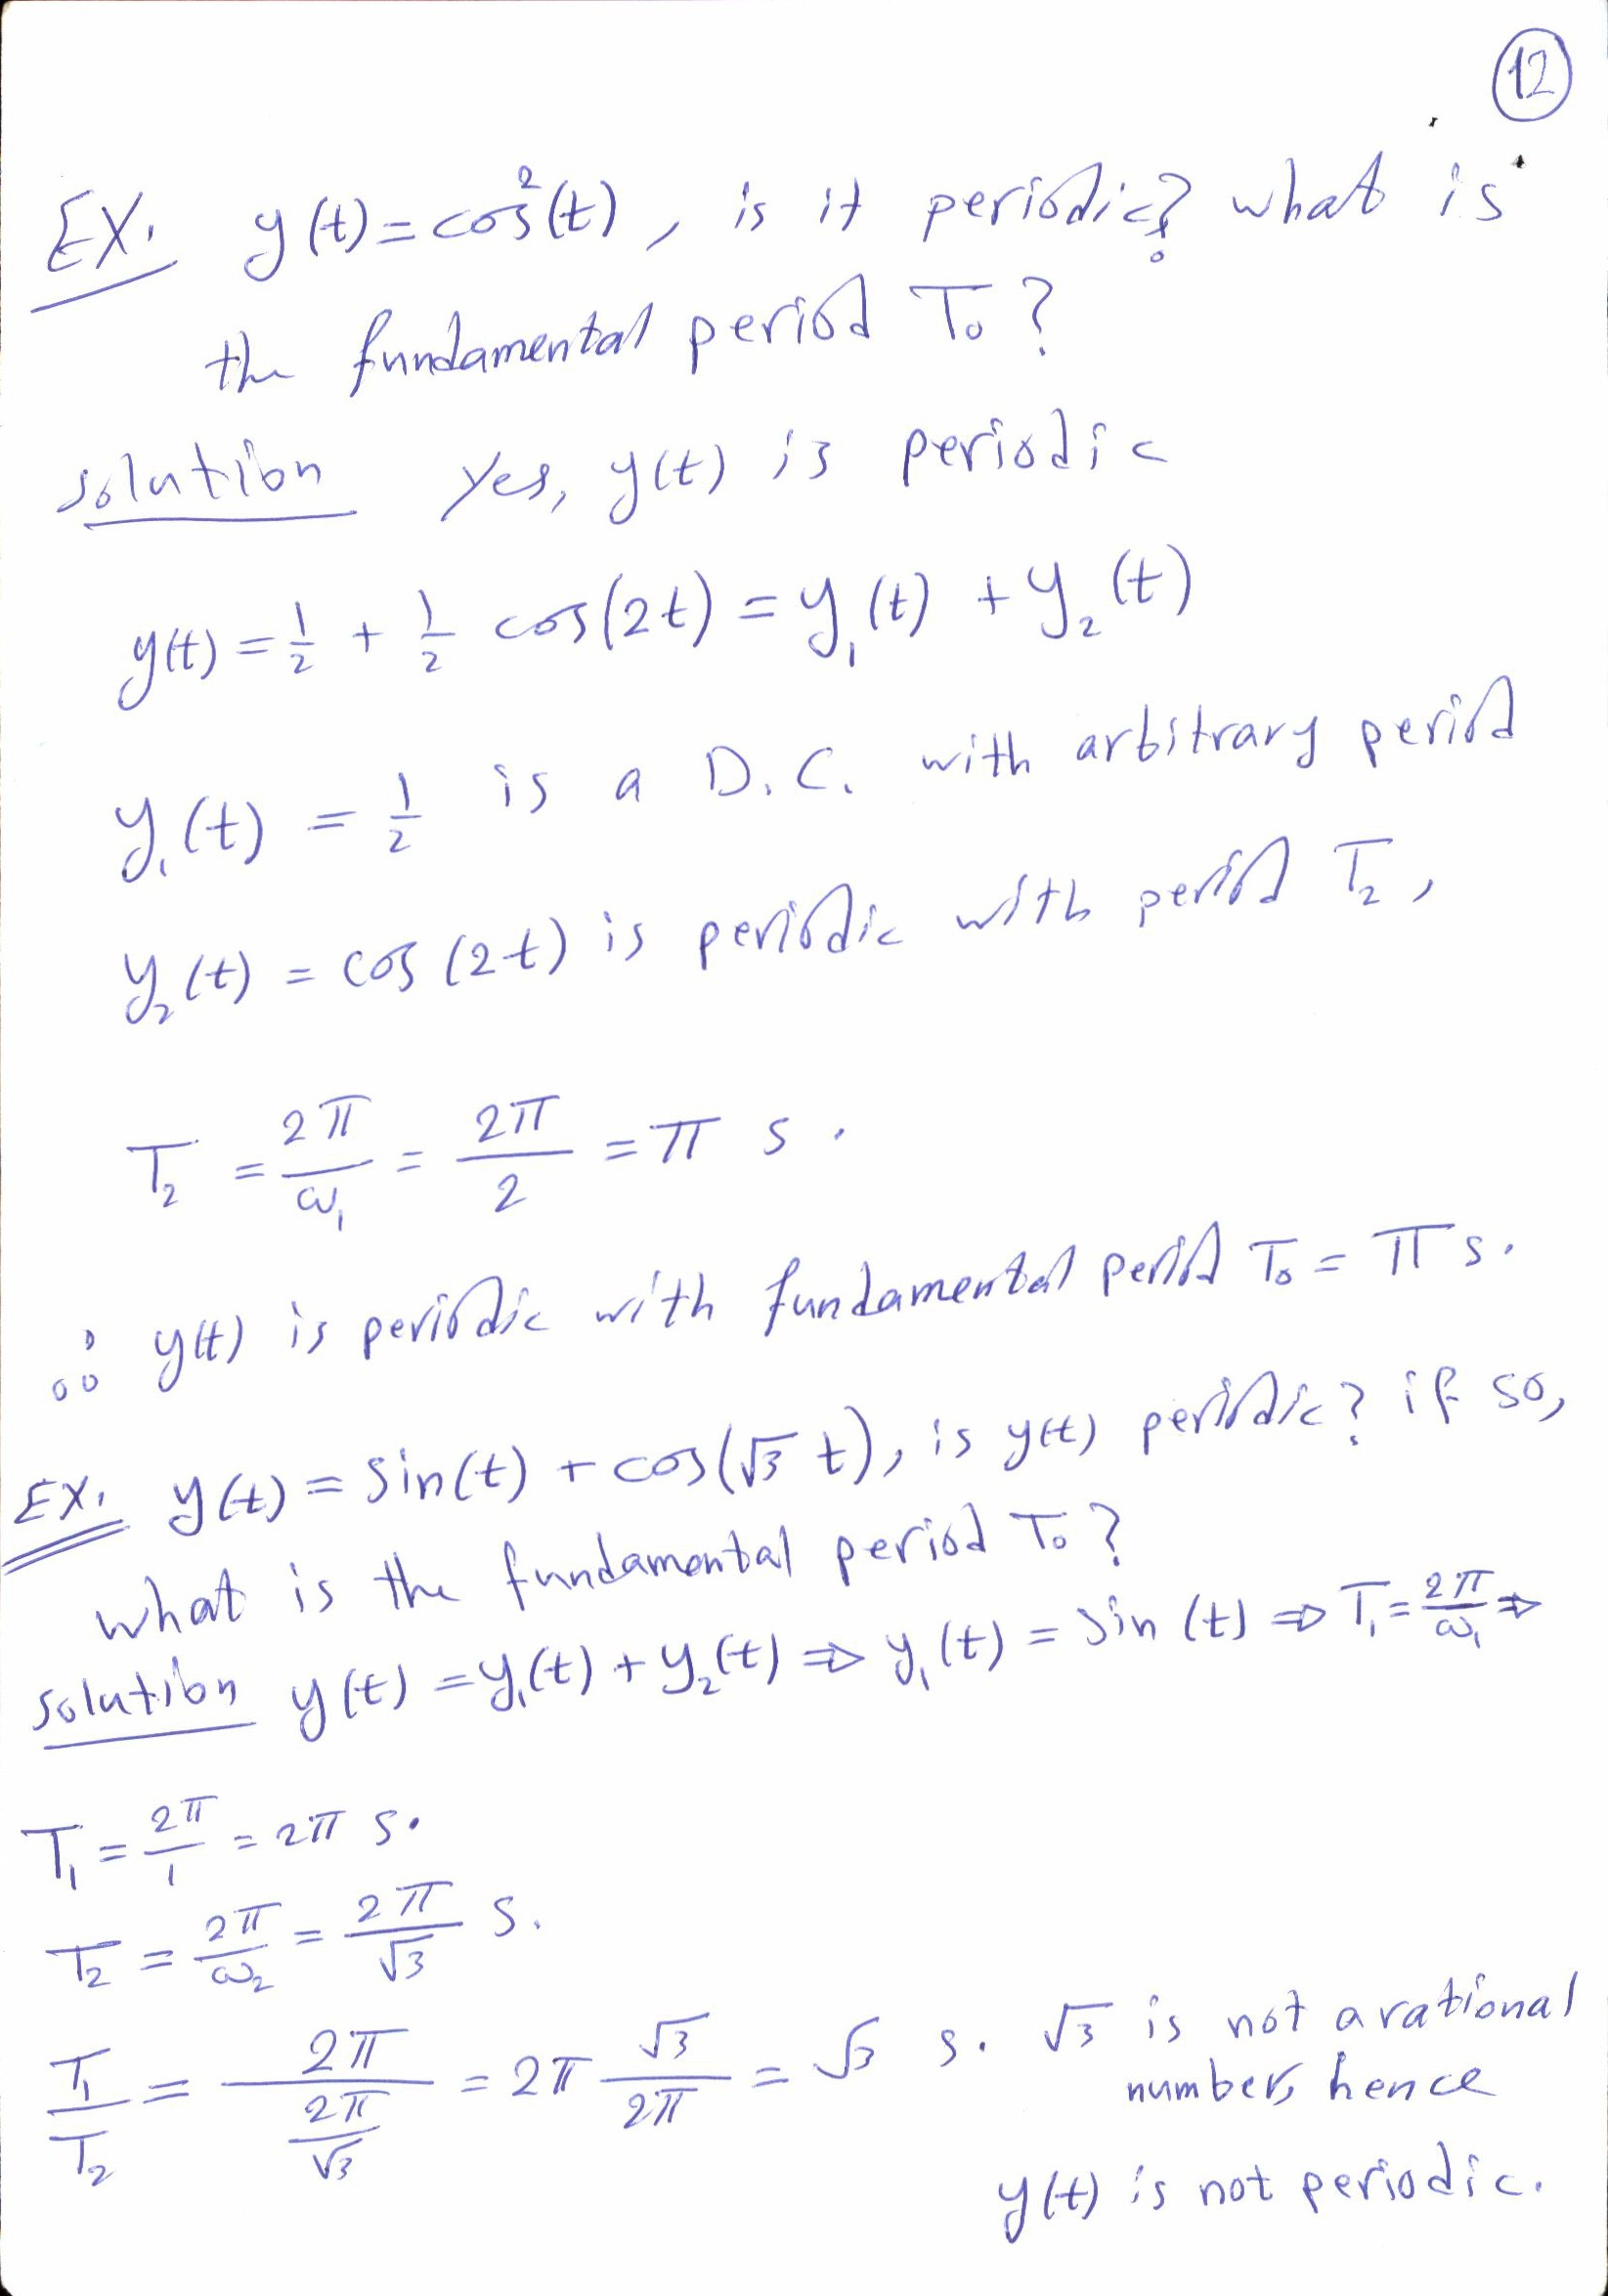 12
EX. y(t) = cos²(t), is it periodic? what is
the fundamental period T₀?
solution Yes, y(t) is periodic
y(t) = 1/2 + 1/2 cos(2t) = y₁(t) + y₂(t)
y₁(t) = 1/2 is a D.C. with arbitrary period
y₂(t) = cos(2t) is periodic with period T₂,
T₂ = 2π/ω₁ = 2π/2 = π s.
∴ y(t) is periodic with fundamental period T₀ = π s.
EX. y(t) = sin(t) + cos(√3 t), is y(t) periodic? if so,
what is the fundamental period T₀?
solution y(t) = y₁(t) + y₂(t) ⇒ y₁(t) = sin(t) ⇒ T₁ = 2π/ω₁ ⇒
T₁ = 2π/1 = 2π s.
T₂ = 2π/ω₂ = 2π/√3 s.
T₁/T₂ = 2π/(2π/√3) = 2π √3/2π = √3 s. √3 is not a rational
number, hence
y(t) is not periodic.